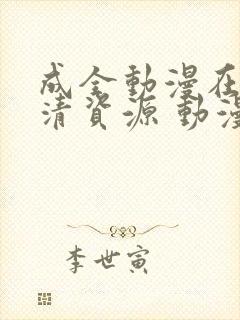 成全動漫在
清資源 動漫
李世寅